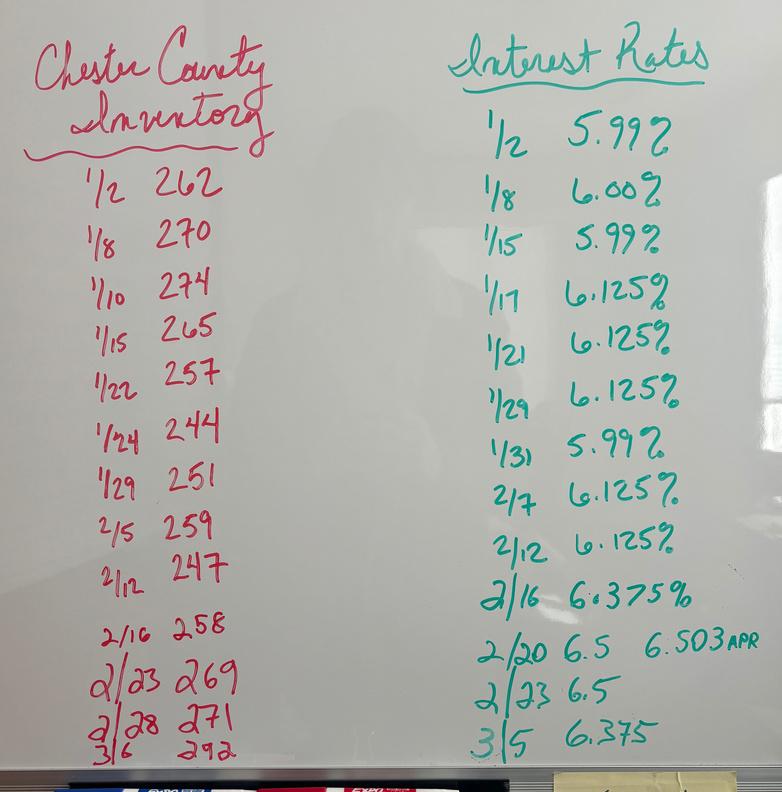 Chester County
Inventory
1/2 262
1/8 270
1/10 274
1/15 265
1/22 257
1/24 244
1/29 251
2/5 259
2/12 247
2/16 258
2/23 269
2/28 271
3/6 292
Interest Rates
1/2 5.99%
1/8 6.00%
1/15 5.99%
1/17 6.125%
1/21 6.125%
1/29 6.125%
1/31 5.99%
2/7 6.125%
2/12 6.125%
2/16 6.375%
2/20 6.5 6.503 APR
2/23 6.5
3/5 6.375
EXPO
EXPO